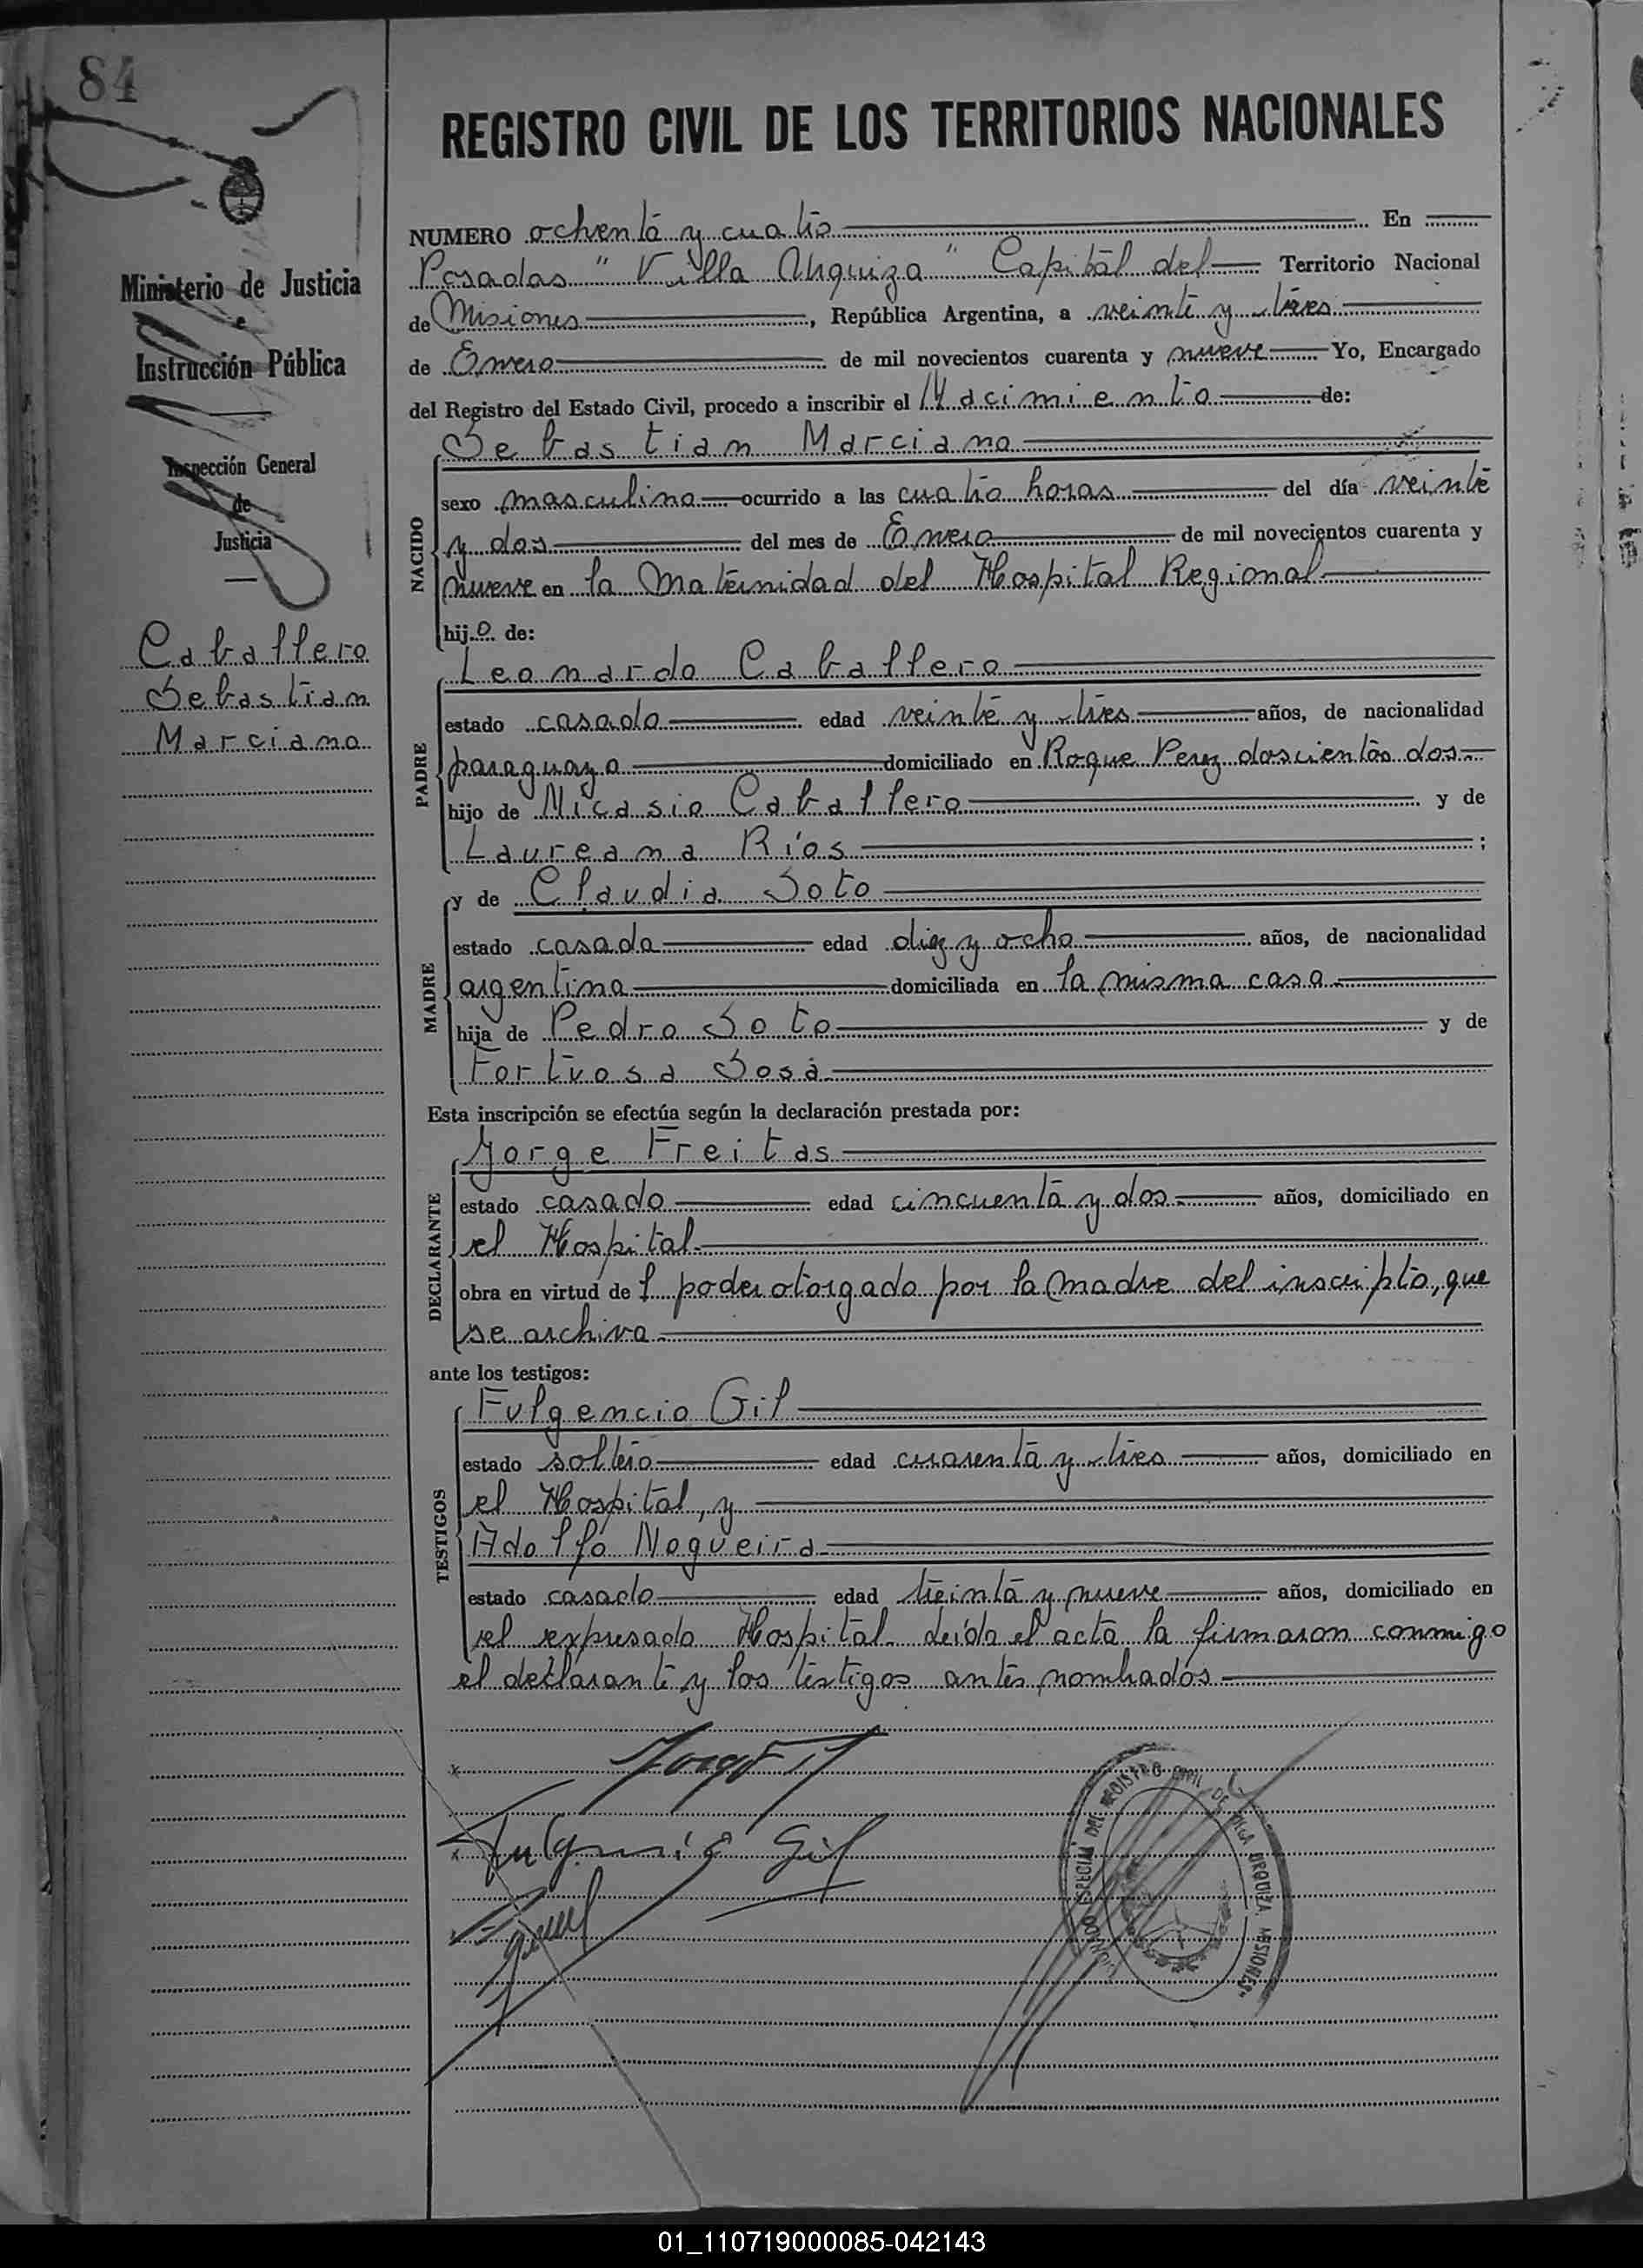 84
REGISTRO CIVIL DE LOS TERRITORIOS NACIONALES
Ministerio de Justicia
e
Instrucción Pública
Inspección General
de
Justicia
Caballero
Sebastian
Marciano
NUMERO ochenta y cuatro En
Posadas "Villa Urquiza" Capital del Territorio Nacional
de Misiones, República Argentina, a veinte y tres
de Enero de mil novecientos cuarenta y nueve Yo, Encargado
del Registro del Estado Civil, procedo a inscribir el Nacimiento de:
Sebastian Marciano
NACIDO
sexo masculino ocurrido a las cuatro horas del día veinte
y dos del mes de Enero de mil novecientos cuarenta y
nueve en la Maternidad del Hospital Regional
hijo de:
Leonardo Caballero
PADRE
estado casado edad veinte y tres años, de nacionalidad
paraguaya domiciliado en Roque Perez doscientos dos
hijo de Nicasio Caballero y de
Laureana Ríos ;
y de Claudia Soto
MADRE
estado casada edad diez y ocho años, de nacionalidad
argentina domiciliada en la misma casa
hija de Pedro Soto y de
Fortuosa Sosa
Esta inscripción se efectúa según la declaración prestada por:
Jorge Freitas
DECLARANTE
estado casado edad cincuenta y dos años, domiciliado en
el Hospital
obra en virtud del poder otorgado por la madre del inscripto, que
se archiva
ante los testigos:
Fulgencio Gil
TESTIGOS
estado soltero edad cuarenta y tres años, domiciliado en
el Hospital, y
Adolfo Nogueira
estado casado edad treinta y nueve años, domiciliado en
el expresado Hospital. Leída el acta la firmaron conmigo
el declarante y los testigos antes nombrados
Fulgencio Gil
ESPECIAL DEL REGISTRO CIVIL DE VILLA URQUIZA MISIONES
01_110719000085-042143